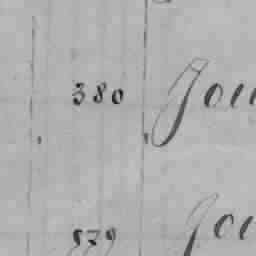 380 Jou
579 Jou